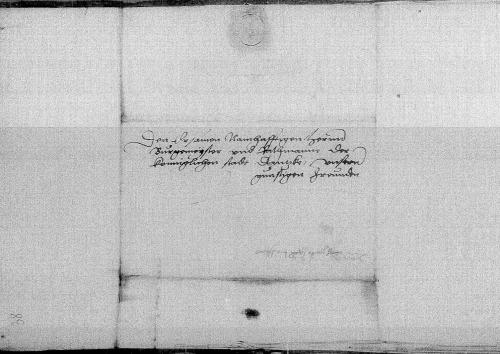 Den Ersamen Namhafftigen Herrnn
Burgemeyster vnd Rathmanne der
Koniglichen stadt Danzke, vnsern
gunstigen freunden
38